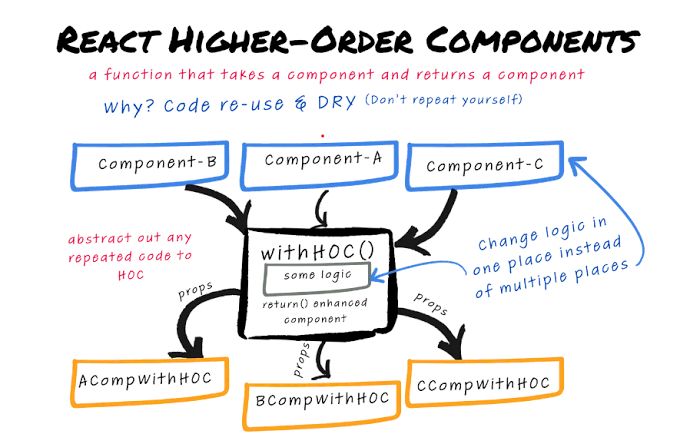 React Higher-Order Components
a function that takes a component and returns a component
why? Code re-use & DRY (Don't repeat yourself)
Component-B
Component-A
Component-C
abstract out any
repeated code to
HOC
withHOC()
some logic
return() enhanced
component
Change logic in
one place instead
of multiple places
props
props
props
ACompWithHOC
BCompWithHOC
CCompWithHOC